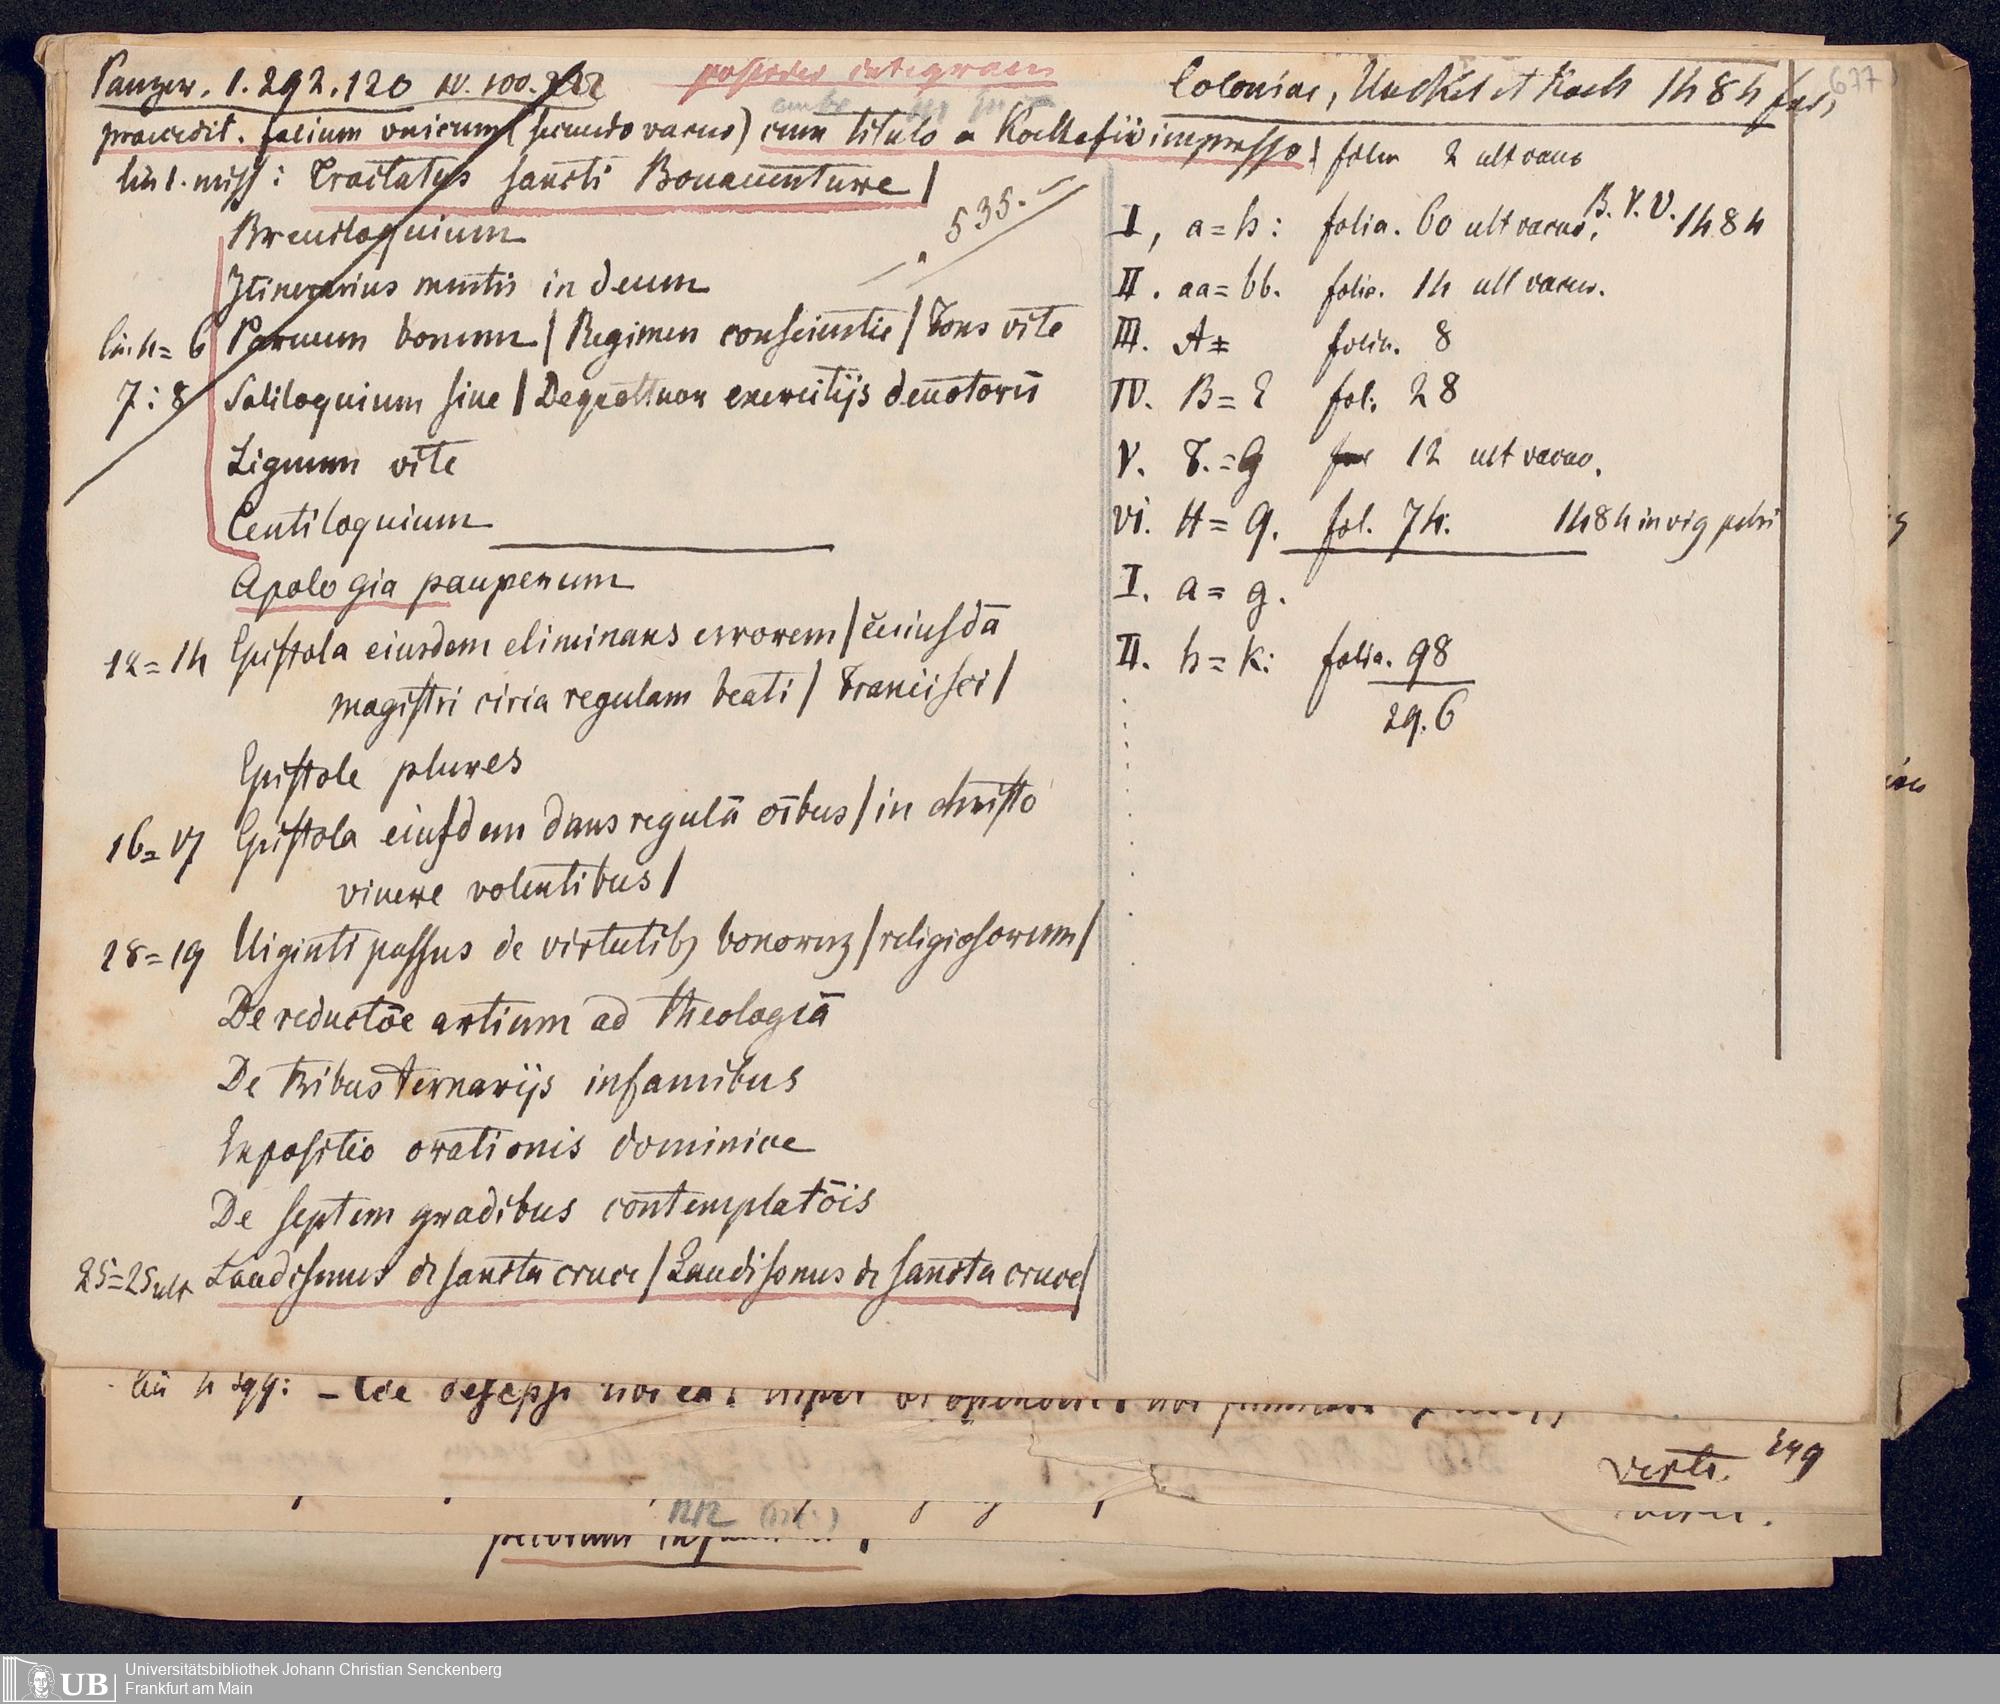 Panzer. 1. 292. 120 IV. 100.
Coloniae, Unckel et Koch 1484 fol,
677
praecedit. folium unicum (secundo vacuo) cum titulo a Koelhofio impresso: folia 2 ult vacuo
lin 1. miss: Tractatus sancti Bonauenture |
Breuiloquium
535.
Itinerarius mentis in deum
lin. 4 = 6 Paruum bonum | Regimen conscientie | Fons vite
7 : 8 Soliloquium siue | De quattuor exercitijs deuotorū
Lignum vite
Centiloquium
Apologia pauperum
12 = 14 Epistola eiusdem eliminans errorem | cuiusdā
magistri circa regulam beati | Francisci |
Epistole plures
16 = 17 Epistola eiusdem dans regulā oībus | in christo
viuere volentibus |
18 = 19 Uiginti passus de virtutibꝫ bonorum | religiosorum |
De reductōe artium ad theologiā
De tribus ternarijs infamibus
Expositio orationis dominice
De septem gradibus contemplatōis
25 = 25 ult Laudismus de sancta cruce | Laudismus de sancta cruce |
I, a = h: folia. 60 ult vacuo, B. P. V. 1484
II. aa = bb. folia. 14 ult vacuo.
III. A folia. 8
IV. B = E fol. 28
V. F. = G fol 12 ult vacuo.
VI. H = Q. fol. 74. 1484 in vig petri
I. a = g.
II. h = k: folia. 98
29.6
lin 4 sqq:
verte. 249
1212
Universitätsbibliothek Johann Christian Senckenberg
Frankfurt am Main
UB